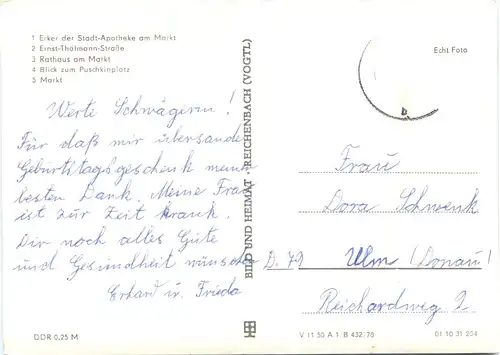 1 Erker der Stadt-Apotheke am Markt
2 Ernst-Thälmann-Straße
3 Rathaus am Markt
4 Blick zum Puschkinplatz
5 Markt
Werte Schwägerin!
Für daß mir übersande
Geburtstagsgeschenk meine
besten Dank. Meine Frau
ist zur Zeit krank.
Dir noch alles Gute
und Gesundheit wünschen
Erhard u. Frieda
DDR 0,25 M
BILD UND HEIMAT REICHENBACH (VOGTL)
Echt Foto
b
Frau
Dora Schwenk
D. 79 Ulm (Donau)
Reichardweg 2
V 11 50 A 1 B 432/78 01 10 31 204